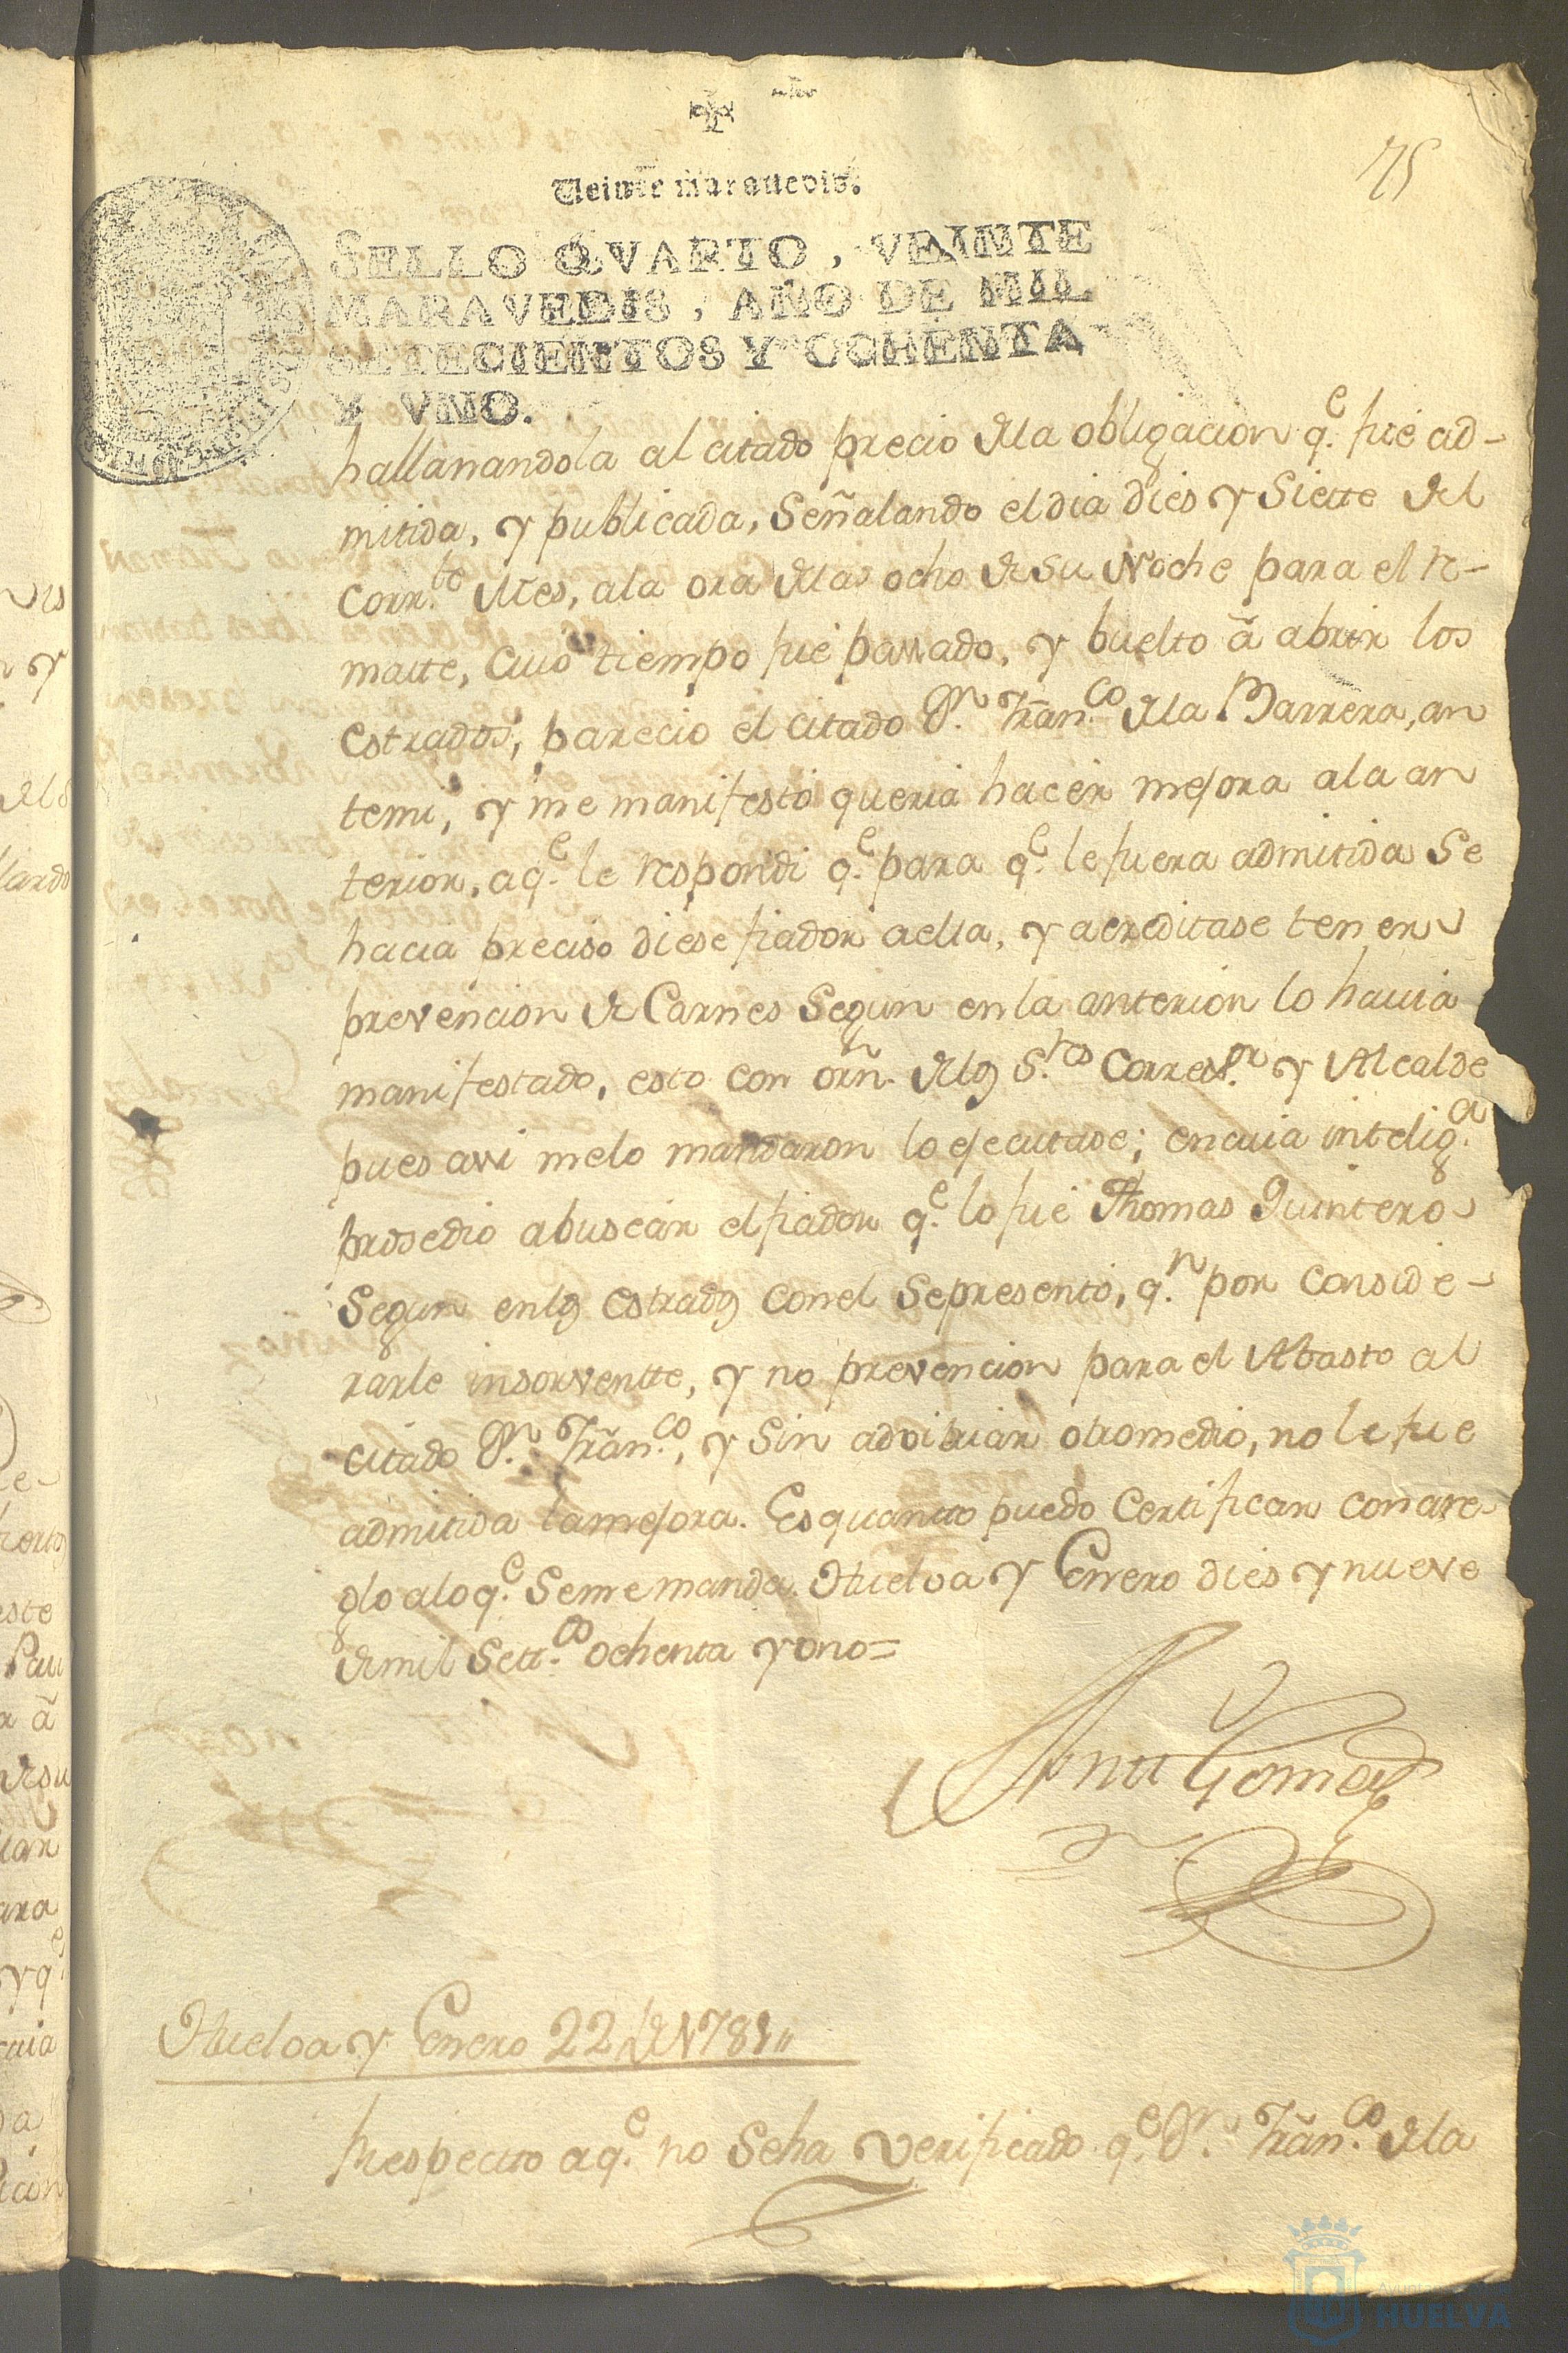 75
Veinte maravedis.
SELLO QVARTO, VEINTE
MARAVEDIS, AÑO DE MIL
SETECIENTOS Y OCHENTA
Y VNO.
hallanandola al citado precio dela obligacion q.e fue ad-
mitida, y publicada, Señalando el dia dies y Siette del
Corr.te Mes, ala ora delas ocho de su Noche para el re-
matte, cuio tiempo fue passado, y buelto â abrir los
estrados, parecio el citado D.n Fran.co dela Barrera, an
temi, y me manifestó queria hacer mejora ala an
terior, aq.e le respondi q.e para q.e le fuera admitida Se
hacia preciso diese fiador aella, y acreditase tener
prevencion de Carnes Segun en la anterior lo havia
manifestado, esto con orn. delos S.res Correx.or y Alcalde
pues assi melo mandaron lo ejecutase; encuia intelig.a
prosedio abuscar el fiador q.e lo fue Thomas Quintero
Segun enlos estrados conel Sepresentó, q.n por conside-
rarle insorventte, y no prevencion para el Abasto al
citado D.n Fran.co, y Sin advitriar otromedio, no le fue
admitida lamejora. Es quantto puedo Certificar conarre-
glo aloq.e Sememanda. Huelva y Enero dies y nueve
demil Sett.os ochenta y ono=
Gomez
Huelva y Enero 22 de 1781,,
Respectto aq.e no Seha verificado q.e D.n Fran.co dela
HUELVA